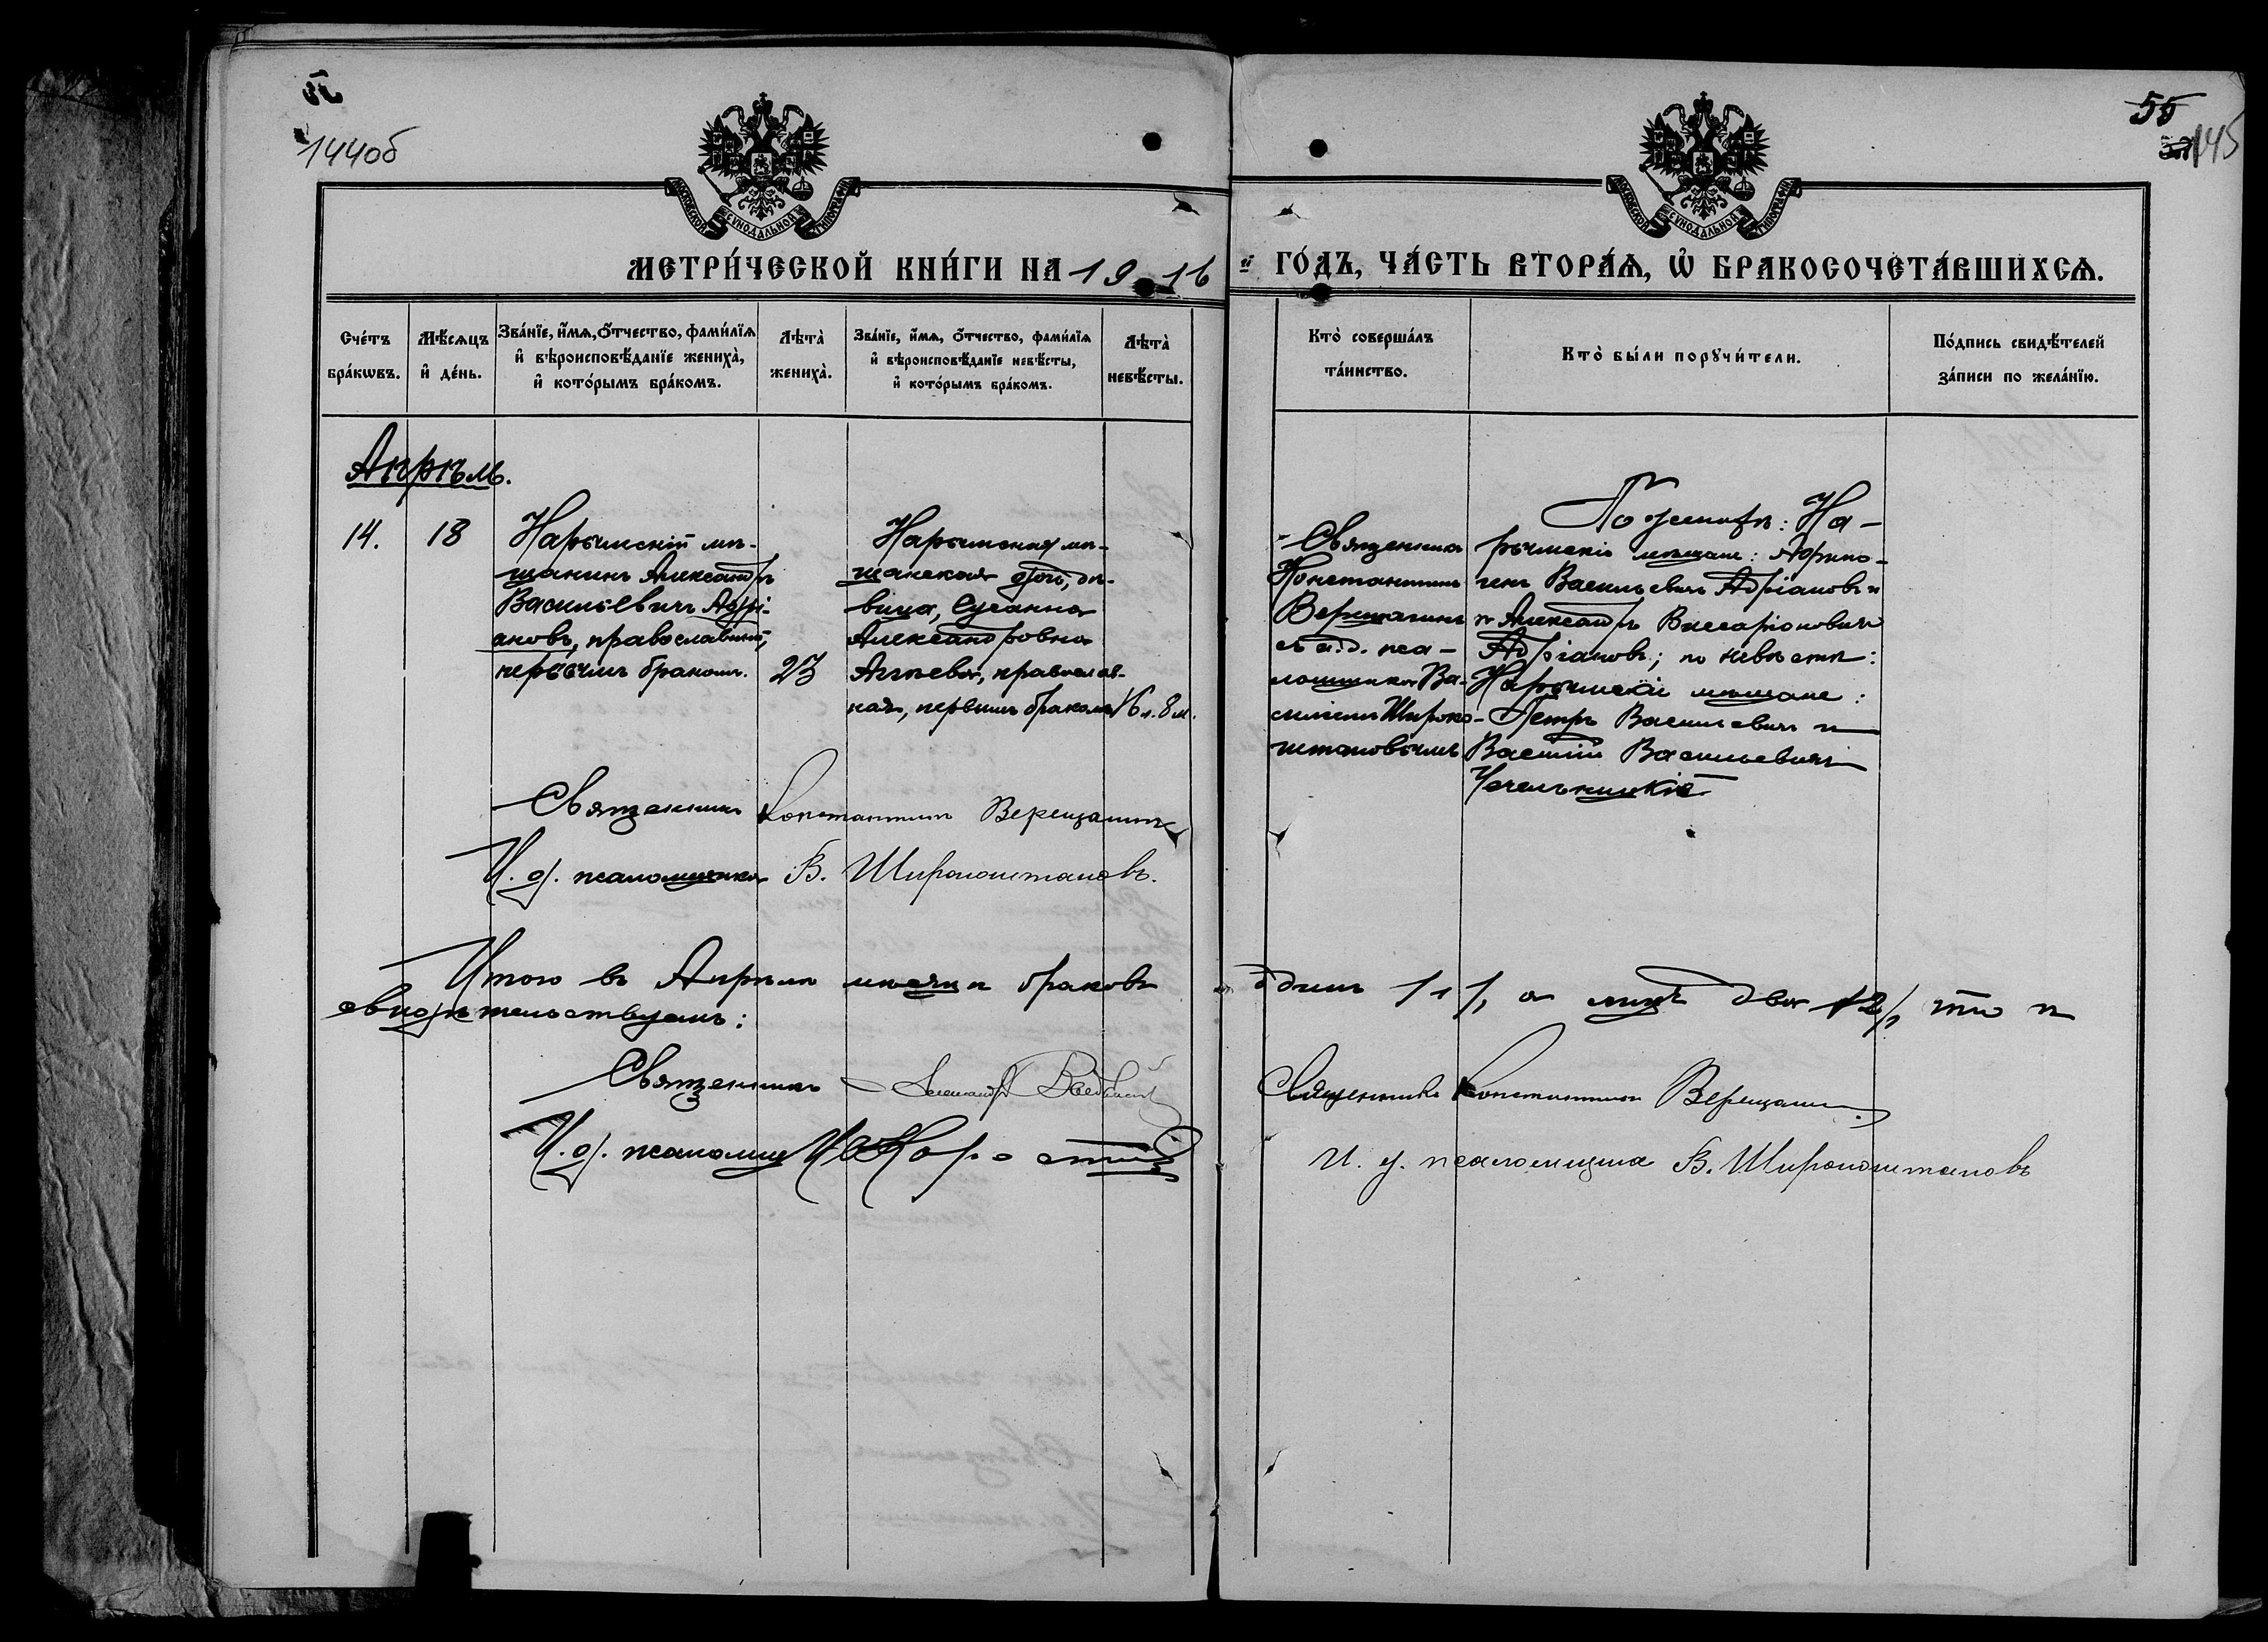 144об
55
145
МОСКОВСКОЙ СѴНОДАЛЬНОЙ ТИПОГРАФІИ
МОСКОВСКОЙ СѴНОДАЛЬНОЙ ТИПОГРАФІИ
МЕТРИ́ЧЕСКОЙ КНИ́ГИ НА 1916
й ГО́ДЪ, ЧА́СТЬ ВТОРА́Ѧ, Ѽ БРАКОСОЧЕТА́ВШИХСѦ.
Сче́тъ
бра́кѡвъ.
Мѣ́сѧцъ
и҆ де́нь.
Зва́нїе, и҆́мѧ, ѻ҆́тчество, фами́лїѧ
и҆ вѣроисповѣ́данїе жениха̀,
и҆ кото́рымъ бра́комъ.
Лѣ́та̀
жениха̀.
Зва́нїе, и҆́мѧ, ѻ҆́тчество, фами́лїѧ
и҆ вѣроисповѣ́данїе невѣ́сты,
и҆ кото́рымъ бра́комъ.
Лѣ́та̀
невѣ́сты.
Кто̀ соверша́лъ
та́инство.
Кто̀ бы́ли порꙋчи́тели.
По́дпись свидѣ́телей
за́писи по жела́нїю.
Апрѣль.
14.
18
Нарымскій мѣ-
щанинъ Александръ
Васильевичъ Адрі-
ановъ, православный,
первымъ бракомъ.
23
Нарымская мѣ-
щанская дочь, дѣ-
вица, Сусанна
Александровна
православ-
ная, первымъ бракомъ
16 л. 8 м.
Священникъ
Константинъ
Верещагинъ
съ и.д. пса-
ломщика Ва-
силіемъ Широко-
штановымъ
По женихѣ: На-
рымскіе мѣщане:
Васильевичъ Адріановъ и
Александръ Виссаріоновичъ
Адріановъ; по невѣстѣ:
Нарымскіе мѣщане:
Петръ Васильевичъ и
Василій Васильевичъ
Священникъ Константинъ Верещагинъ
И. д. псаломщика В. Широкоштановъ.
Итого въ Апрѣлѣ мѣсяцѣ браковъ одинъ /1/, а лицъ два /2/, что и
свидѣтельствуемъ:
Священникъ Александръ
Священникъ Константинъ Верещагинъ.
И. д. псаломщ
И. д. псаломщика В. Широкоштановъ